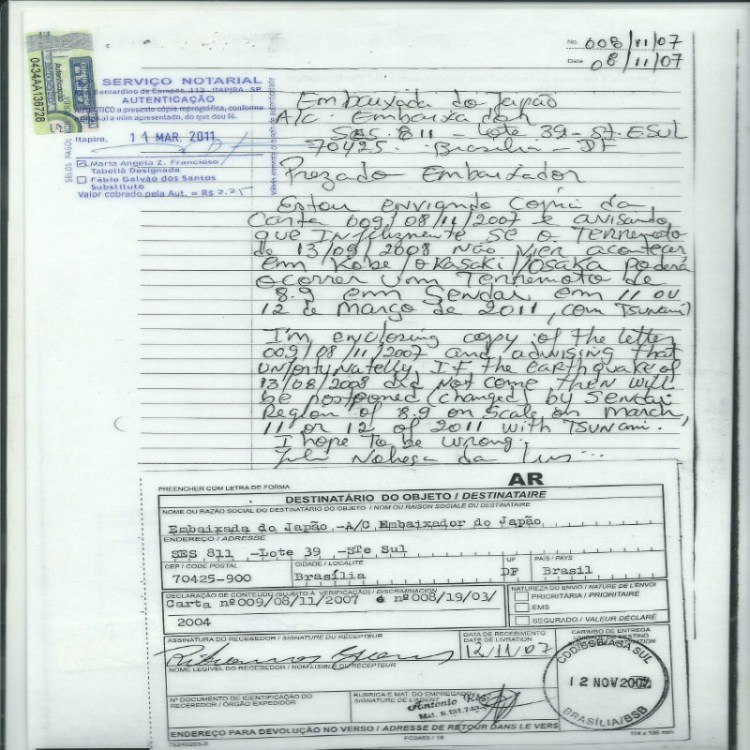 No. 008/11/07
Date 08/11/07
0434AA136728
SERVIÇO NOTARIAL
Bernardino de Campos, 113 - ITAPIRA - SP
AUTENTICAÇÃO
AUTENTICO a presente cópia reprográfica, conforme
original a mim apresentado, do que dou fé.
Itapira, 11 MAR. 2011
Maria Angela Z. Francioso
Tabeliã Designada
Fábio Galvão dos Santos
Substituto
Valor cobrado pela Aut. = R$ 2.25
Embaixada do Japão
A/C. Embaixador
SES. 811 - Lote 39 - ST. E SUL
70425. Brasília - DF
Prezado Embaixador
Estou enviando Copia da
Carta 009/08/11/2007 e avisando
que Infelizmente se o Terremoto
de 13/09/2008 não vier acontecer
em Kobe/Okasaki/Osaka poderá
ocorrer um Terremoto de
8.9 em Sendai em 11 ou
12 de março de 2011, com Tsunami
I'm enclosing copy of the letter
009/08/11/2007 and advising that
Unfortynatelly, If the earthquake of
13/08/2008 did not come then will
be postponed (changed) by Sendai
Region of 8.9 on Scale on march,
11 or 12 of 2011 with Tsunami.
I hope To be wrong.
AR
PREENCHER COM LETRA DE FORMA
DESTINATÁRIO DO OBJETO / DESTINATAIRE
NOME OU RAZÃO SOCIAL DO DESTINATÁRIO DO OBJETO / NOM OU RAISON SOCIALE DU DESTINATAIRE
Embaixada do Japão -A/C Embaixador do Japão
ENDEREÇO / ADRESSE
SES 811 -Lote 39 -STe Sul
CEP / CODE POSTAL CIDADE / LOCALITÉ UF PAÍS / PAYS
70425-900 Brasília DF Brasil
DECLARAÇÃO DE CONTEÚDO (SUJEITO À VERIFICAÇÃO) / DISCRIMINACION NATUREZA DO ENVIO / NATURE DE L'ENVOI
Carta nº009/08/11/2007 e nº008/19/03/
2004
PRIORITÁRIA / PRIORITAIRE
EMS
SEGURADO / VALEUR DÉCLARÉ
ASSINATURA DO RECEBEDOR / SIGNATURE DU RÉCEPTEUR DATA DE RECEBIMENTO CARIMBO DE ENTREGA
DATE DE LIVRATION
12/11/07
NOME LEGÍVEL DO RECEBEDOR / NOM LISIBLE DU RÉCEPTEUR
12 NOV 2007
BRASÍLIA/BSB
Nº DOCUMENTO DE IDENTIFICAÇÃO DO RUBRICA E MAT. DO EMPREGADO
RECEBEDOR / ÓRGÃO EXPEDIDOR SIGNATURE DE L'AGENT
ENDEREÇO PARA DEVOLUÇÃO NO VERSO / ADRESSE DE RETOUR DANS LE VERS
FC0463 / 16 114 x 186 mm